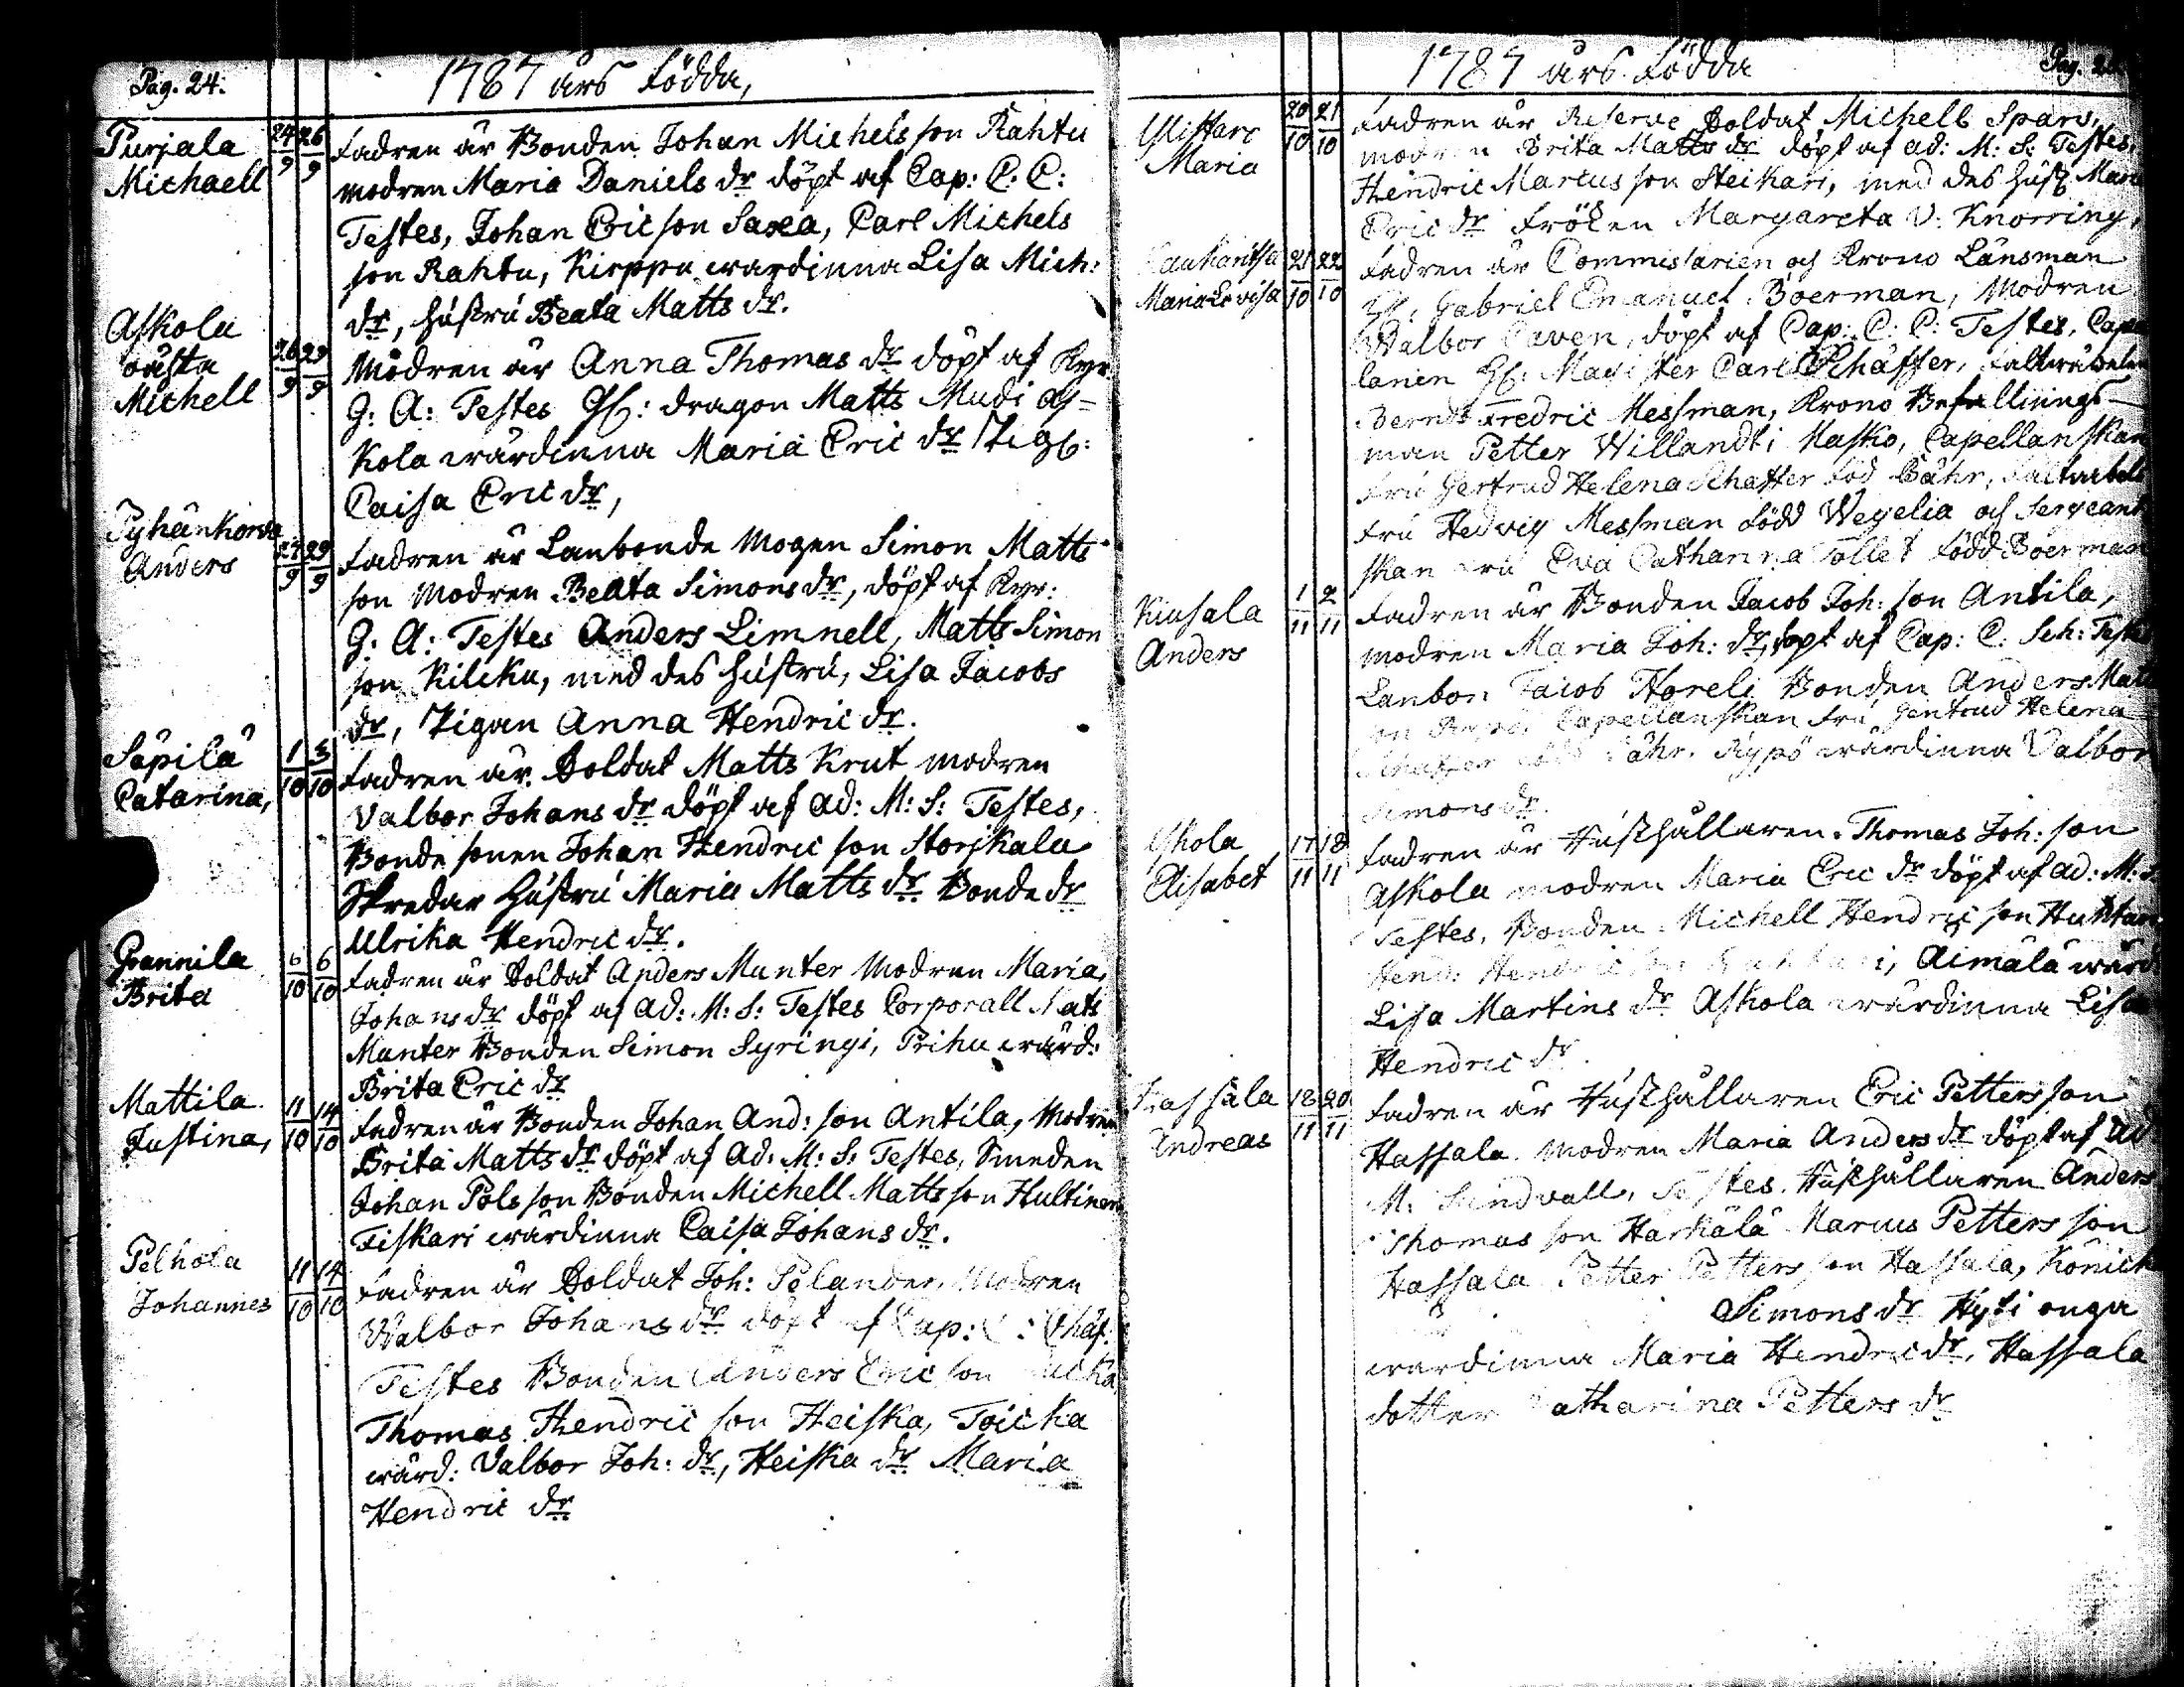 Pag. 24.
1787 års Födda,
Purjala 24/9 26/9 Fadren är Bonden Johan Michelsson Rahtu
Michaell modren Maria Daniels dr döpt af Cap: C: C:
Testes, Johan Ericson Saxa, Carl Michels
son Rahtu, Kirppu wärdinna Lisa Mich:
dr, hustru Beata Matts dr.
Askola
oäkta 26/9 29/9 Modren är Anna Thomas dr döpt af Kyr
Michell G: A: Testes Gl: dragon Matts Mudi As-
kola wärdinna Maria Eric dr Pig:
Caisa Eric dr,
Pyhänkorva
Anders 27/9 29/9 Fadren är Lanbonde Mogen Simon Matts
son Modren Beata Simons dr, döpt af Kyr:
G: A: Testes Anders Limnell, Matts Simon
son Kilcku, med des hustru, Lisa Jacobs
dr, Pigan Anna Hendric dr.
Säpilä 1/10 3/10 Fadren är Soldat Matts Krut modren
Catarina, Valbor Johans dr döpt af Ad: M: S: Testes,
Bonde sonen Johan Hendric son Storjkala
Skredar hustru Maria Matts dr Bonde dr
Ulrika Hendric dr.
Grannila 6/10 6/10 Fadren är Soldat Anders Munter Modren Maria
Brita Johans dr döpt af Ad: M: S: Testes Corporall Mats
Munter Bonden Simon Syringi, Prihu wärd:
Brita Eric dr
Mattila 11/10 14/10 Fadren är Bonden Johan And: son Antila, Modren
Justina, Brita Matts dr döpt af Ad: M: S: Testes, Smeden
Johan Pols son Bonden Michell Matts son Hultinen
Fiskari wärdinna Caisa Johans dr.
Pelhola 11/10 14/10 Fadren är Soldat Joh: Pelander, Modren
Johannes Walbor Johans dr döpt af Cap: C: Schäf:
Testes Bonden Anders Eric son
Thomas Hendric son Heiska, Toicka
wärd: Valbor Joh: dr, Heiska dr Maria
Hendric dr
1787 års Födda
Pag.
20/10 21/10 Fadren är Reserve Soldat Michell Sparv,
Maria modren Brita Matts dr döpt af Ad: M: S: Testes,
Hendric Marcus son Steikari, med des hust Mari
Eric dr Fröken Margareta V: Knorring,
21/10 22/10 Fadren är Commissarien och Krono Länsman
Maria Lovisa Hl: Gabriel Emanuel Böerman, Modren
Walbor Caven, döpt af Cap: C: C: Testes, Cape
lanen Hl: Magister Carl Schäffer,
Berndt Fredric Messman, Krono Befallnings
man Petter Willandt i Masko, Capellanskan
Fru Gertrud Helena Schäffer Föd Bähr,
Fru Hedvig Messman Född Wegelia och Sergeant
skan Fru Eva Catharina Tollet Född Böerman
Kiusala 1/11 2/11 Fadren är Bonden Jacob Joh: son Antila,
Anders modren Maria Joh: dr, döpt af Cap: C: Sch: Testes
Lanbon Jacob Horeli Bonden Anders Matts
Capellanskan Fru Gertrud Helena
Schäffer Född Bähr. Kypö wärdinna Valbor
Simons dr.
Askola 17/11 18/11 Fadren är Hushållaren Thomas Joh: son
Elisabet Askola modren Maria Eric dr döpt af Ad: M: S
Testes, Bonden Michell Hendric son Huhtari
Hend: Hendric son Huhtari, Aimälä wärd
Lisa Martins dr Askola wärdinna Lisa
Hendric dr.
Hassala 18/11 20/11 Fadren är Hushållaren Eric Pettersson
Andreas Hassala. Modren Maria Anders dr döpt af Ad
M. Sundvall, Testes Hushållaren Anders
Thomas son Harkälä Marcus Petters son
Hassala Petter Petters son Hassala, Könick
Simons dr Hyti onga
wärdinna Maria Hendric dr, Hassala
dotter Catharina Petters dr